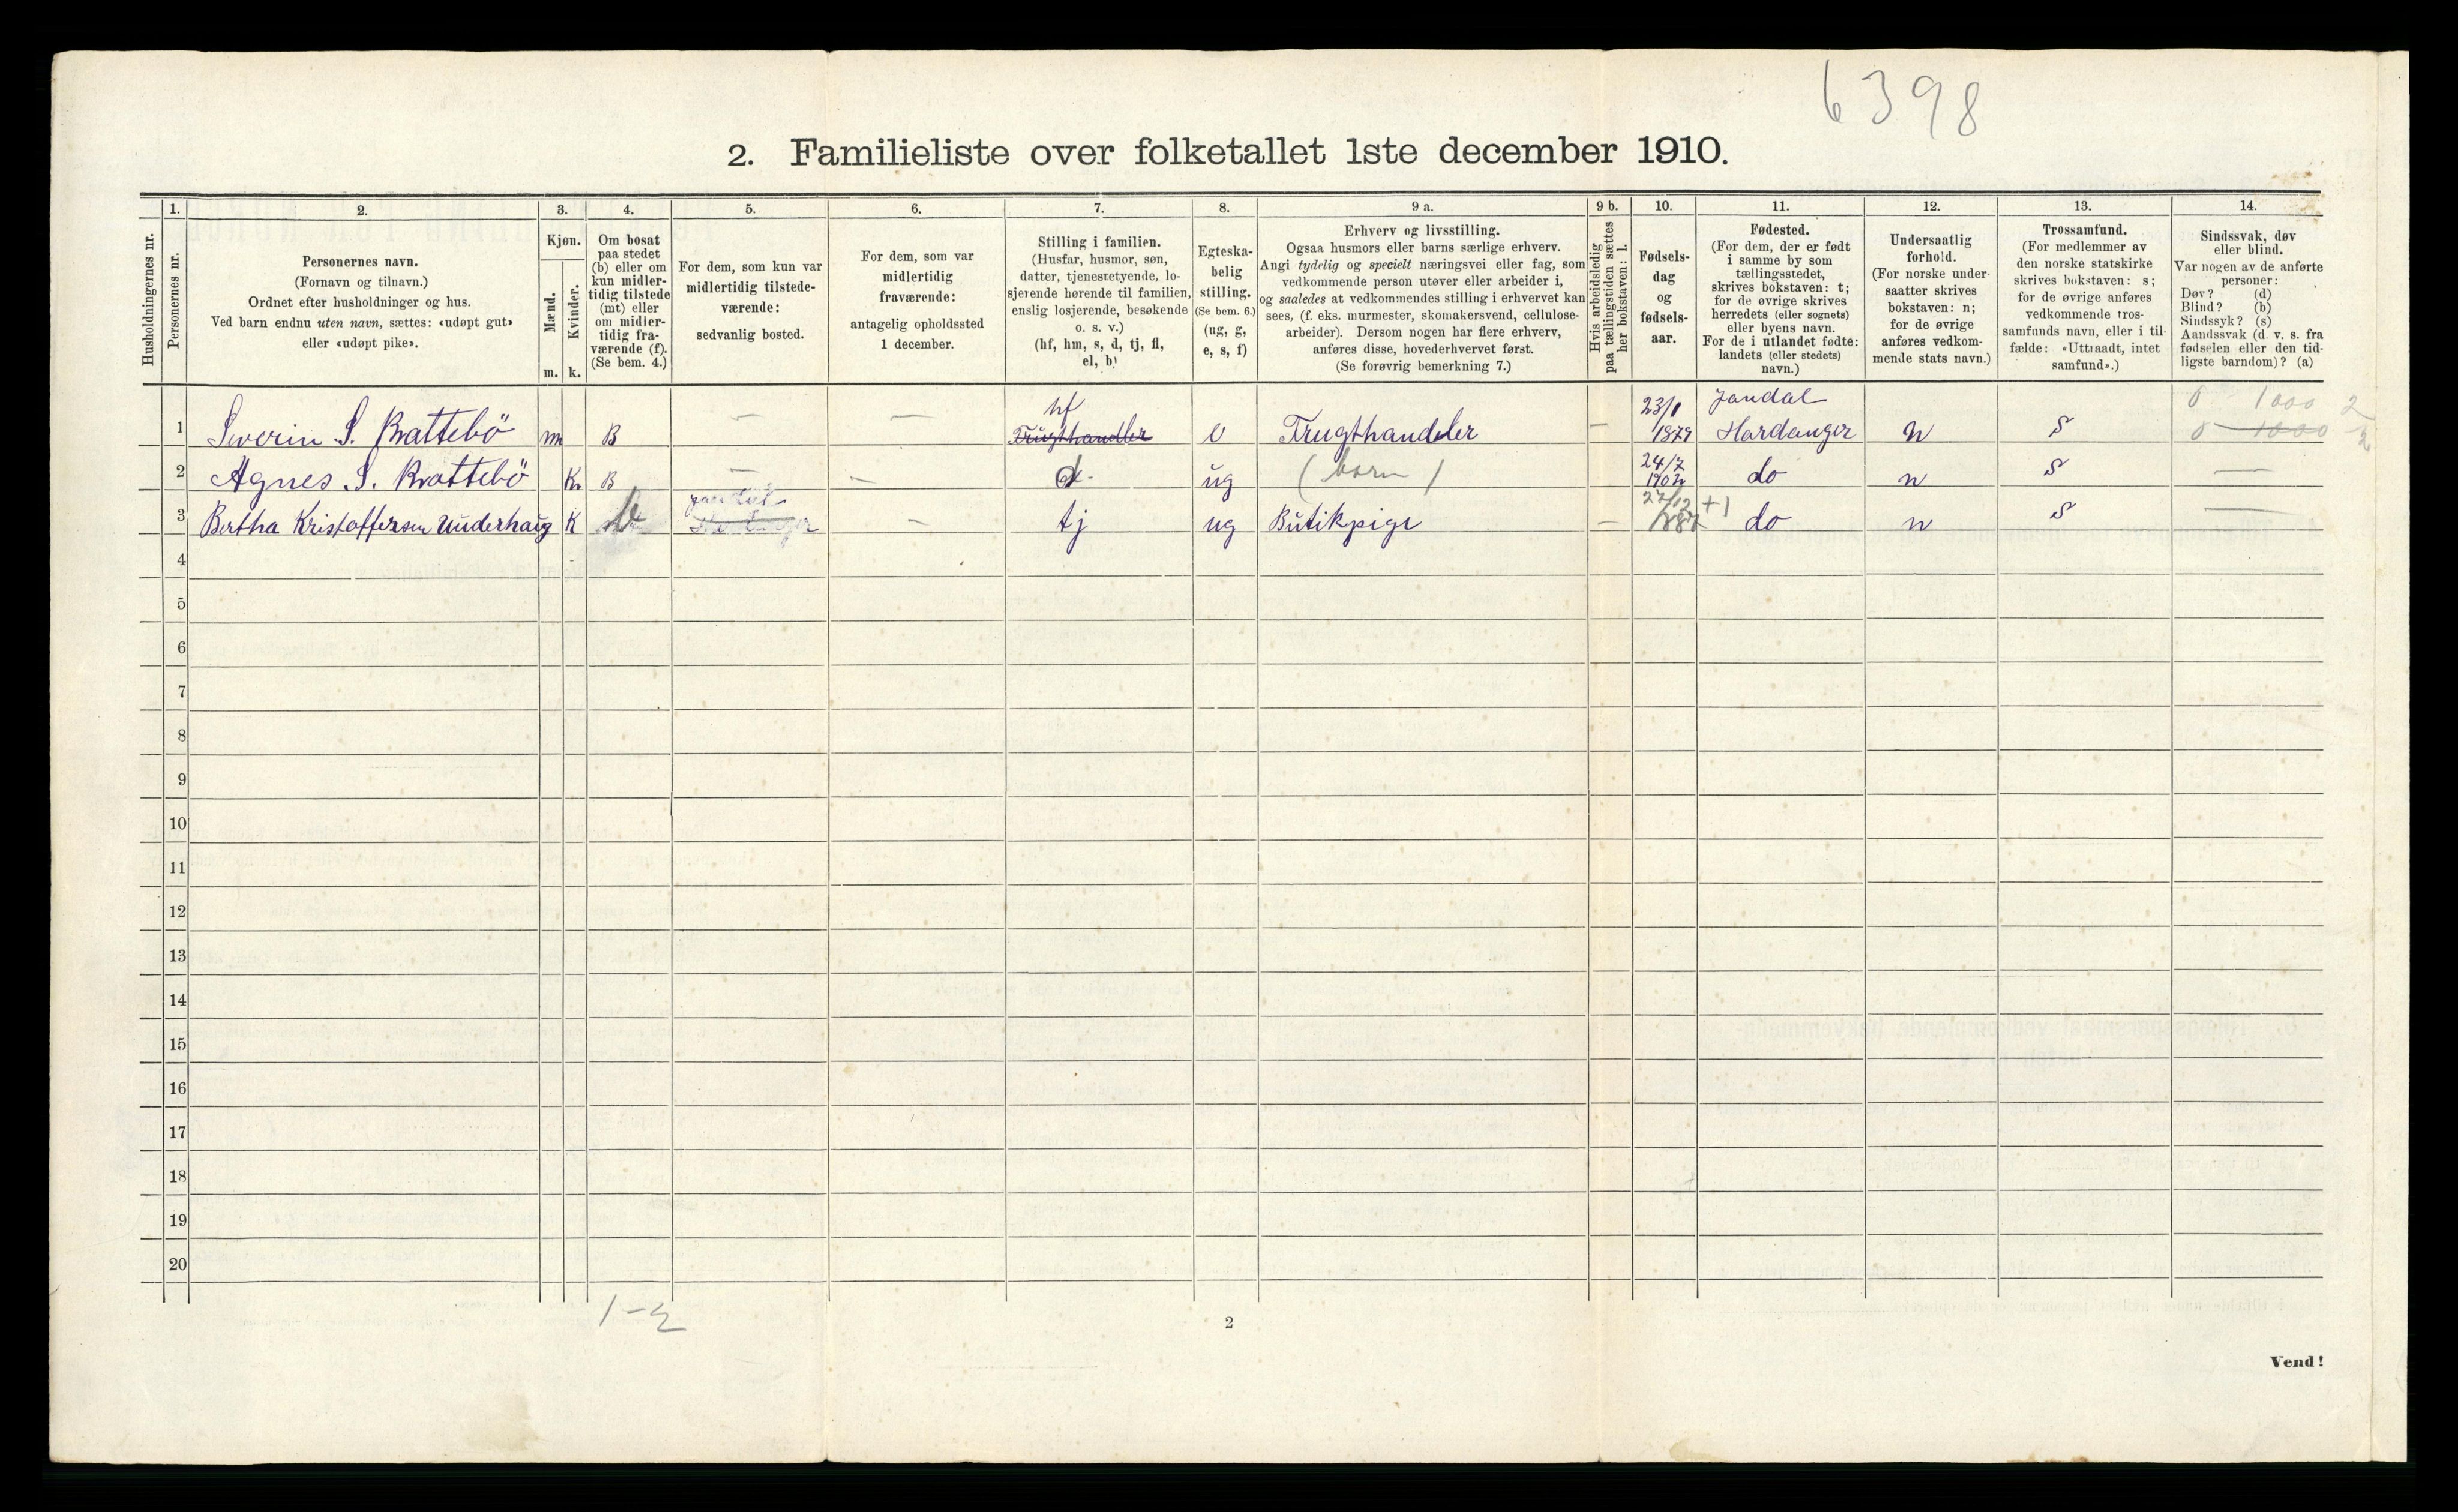 6398
2. Familieliste over folketallet 1ste december 1910.
Husholdningernes nr.
1. Personernes nr.
2. Personernes navn. (Fornavn og tilnavn.) Ordnet efter husholdninger og hus. Ved barn endnu uten navn, sættes: «udøpt gut» eller «udøpt pike».
3. Kjøn. Mænd. Kvinder. m. k.
4. Om bosat paa stedet (b) eller om kun midlertidig tilstede (mt) eller om midlertidig fraværende (f). (Se bem. 4.)
5. For dem, som kun var midlertidig tilstedeværende: sedvanlig bosted.
6. For dem, som var midlertidig fraværende: antagelig opholdssted 1 december.
7. Stilling i familien. (Husfar, husmor, søn, datter, tjenestetyende, losjerende hørende til familien, enslig losjerende, besøkende o. s. v.) (hf, hm, s, d, tj, fl, el, b)
8. Egteskabelig stilling. (Se bem. 6.) (ug, g, e, s, f)
9 a. Erhverv og livsstilling. Ogsaa husmors eller barns særlige erhverv. Angi tydelig og specielt næringsvei eller fag, som vedkommende person utøver eller arbeider i, og saaledes at vedkommendes stilling i erhvervet kan sees, (f. eks. murmester, skomakersvend, cellulosearbeider). Dersom nogen har flere erhverv, anføres disse, hovederhvervet først. (Se forøvrig bemerkning 7.)
9 b. Hvis arbeidsledig paa tællingstiden sættes her bokstaven: l.
10. Fødselsdag og fødselsaar.
11. Fødested. (For dem, der er født i samme by som tællingsstedet, skrives bokstaven: t; for de øvrige skrives herredets (eller sognets) eller byens navn. For de i utlandet fødte: landets (eller stedets) navn.)
12. Undersaatlig forhold. (For norske undersaatter skrives bokstaven: n; for de øvrige anføres vedkommende stats navn.)
13. Trossamfund. (For medlemmer av den norske statskirke skrives bokstaven: s; for de øvrige anføres vedkommende trossamfunds navn, eller i tilfælde: «Uttraadt, intet samfund».)
14. Sindssvak, døv eller blind. Var nogen av de anførte personer: Døv? (d) Blind? (b) Sindssyk? (s) Aandssvak (d. v. s. fra fødselen eller den tidligste barndom)? (a)
1 Severin S. Brattebö m B — — hf Frugthandler e Frugthandler — 23/1 1879 Jondal Hardanger n s 0 1000 2 0 1000 2
2 Agnes S. Brattebö k B — — d. ug (barn) 24/7 1902 do n s —
3 Bertha Kristoffersen Underhaug K b Jondal — tj ug Butikpige — 27/12 +1 1887 do n s —
4
5
6
7
8
9
10
11
12
13
14
15
16
17
18
19
20
1-2
2
Vend!